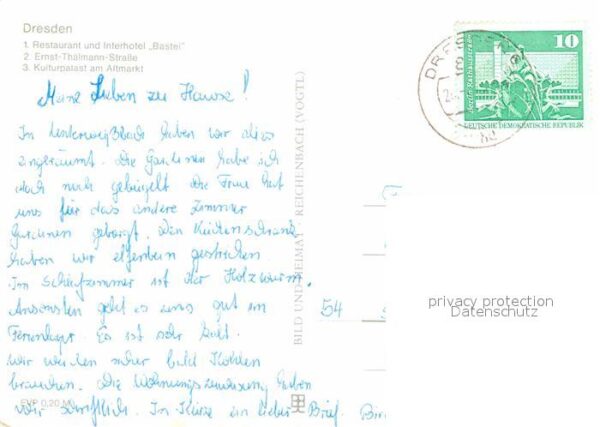 Dresden
1. Restaurant und Interhotel „Bastei"
2. Ernst-Thälmann-Straße
3. Kulturpalast am Altmarkt
Meine Lieben zu Hause!
In haben wir alles
angeräumt. Die Gardinen habe ich
doch noch gebügelt die Frau hat
uns für das andere Zimmer
Gardinen geborgt. Den Küchenschrank
haben wir elfenbein gestrichen.
Im Schlafzimmer ist der Holzwurm.
Ansonsten geht es uns gut im
Ferienlager. Es ist sehr kalt.
Wir werden sicher bald Kohlen
brauchen. Die Wohnungszuweisung haben
wir schriftlich. In Kürze ein lieber Brief.
EVP 0,20 M
BILD UND HEIMAT REICHENBACH (VOGTL)
54
DRESDEN
10
Berlin, Rathausstraße
DEUTSCHE DEMOKRATISCHE REPUBLIK
privacy protection
Datenschutz